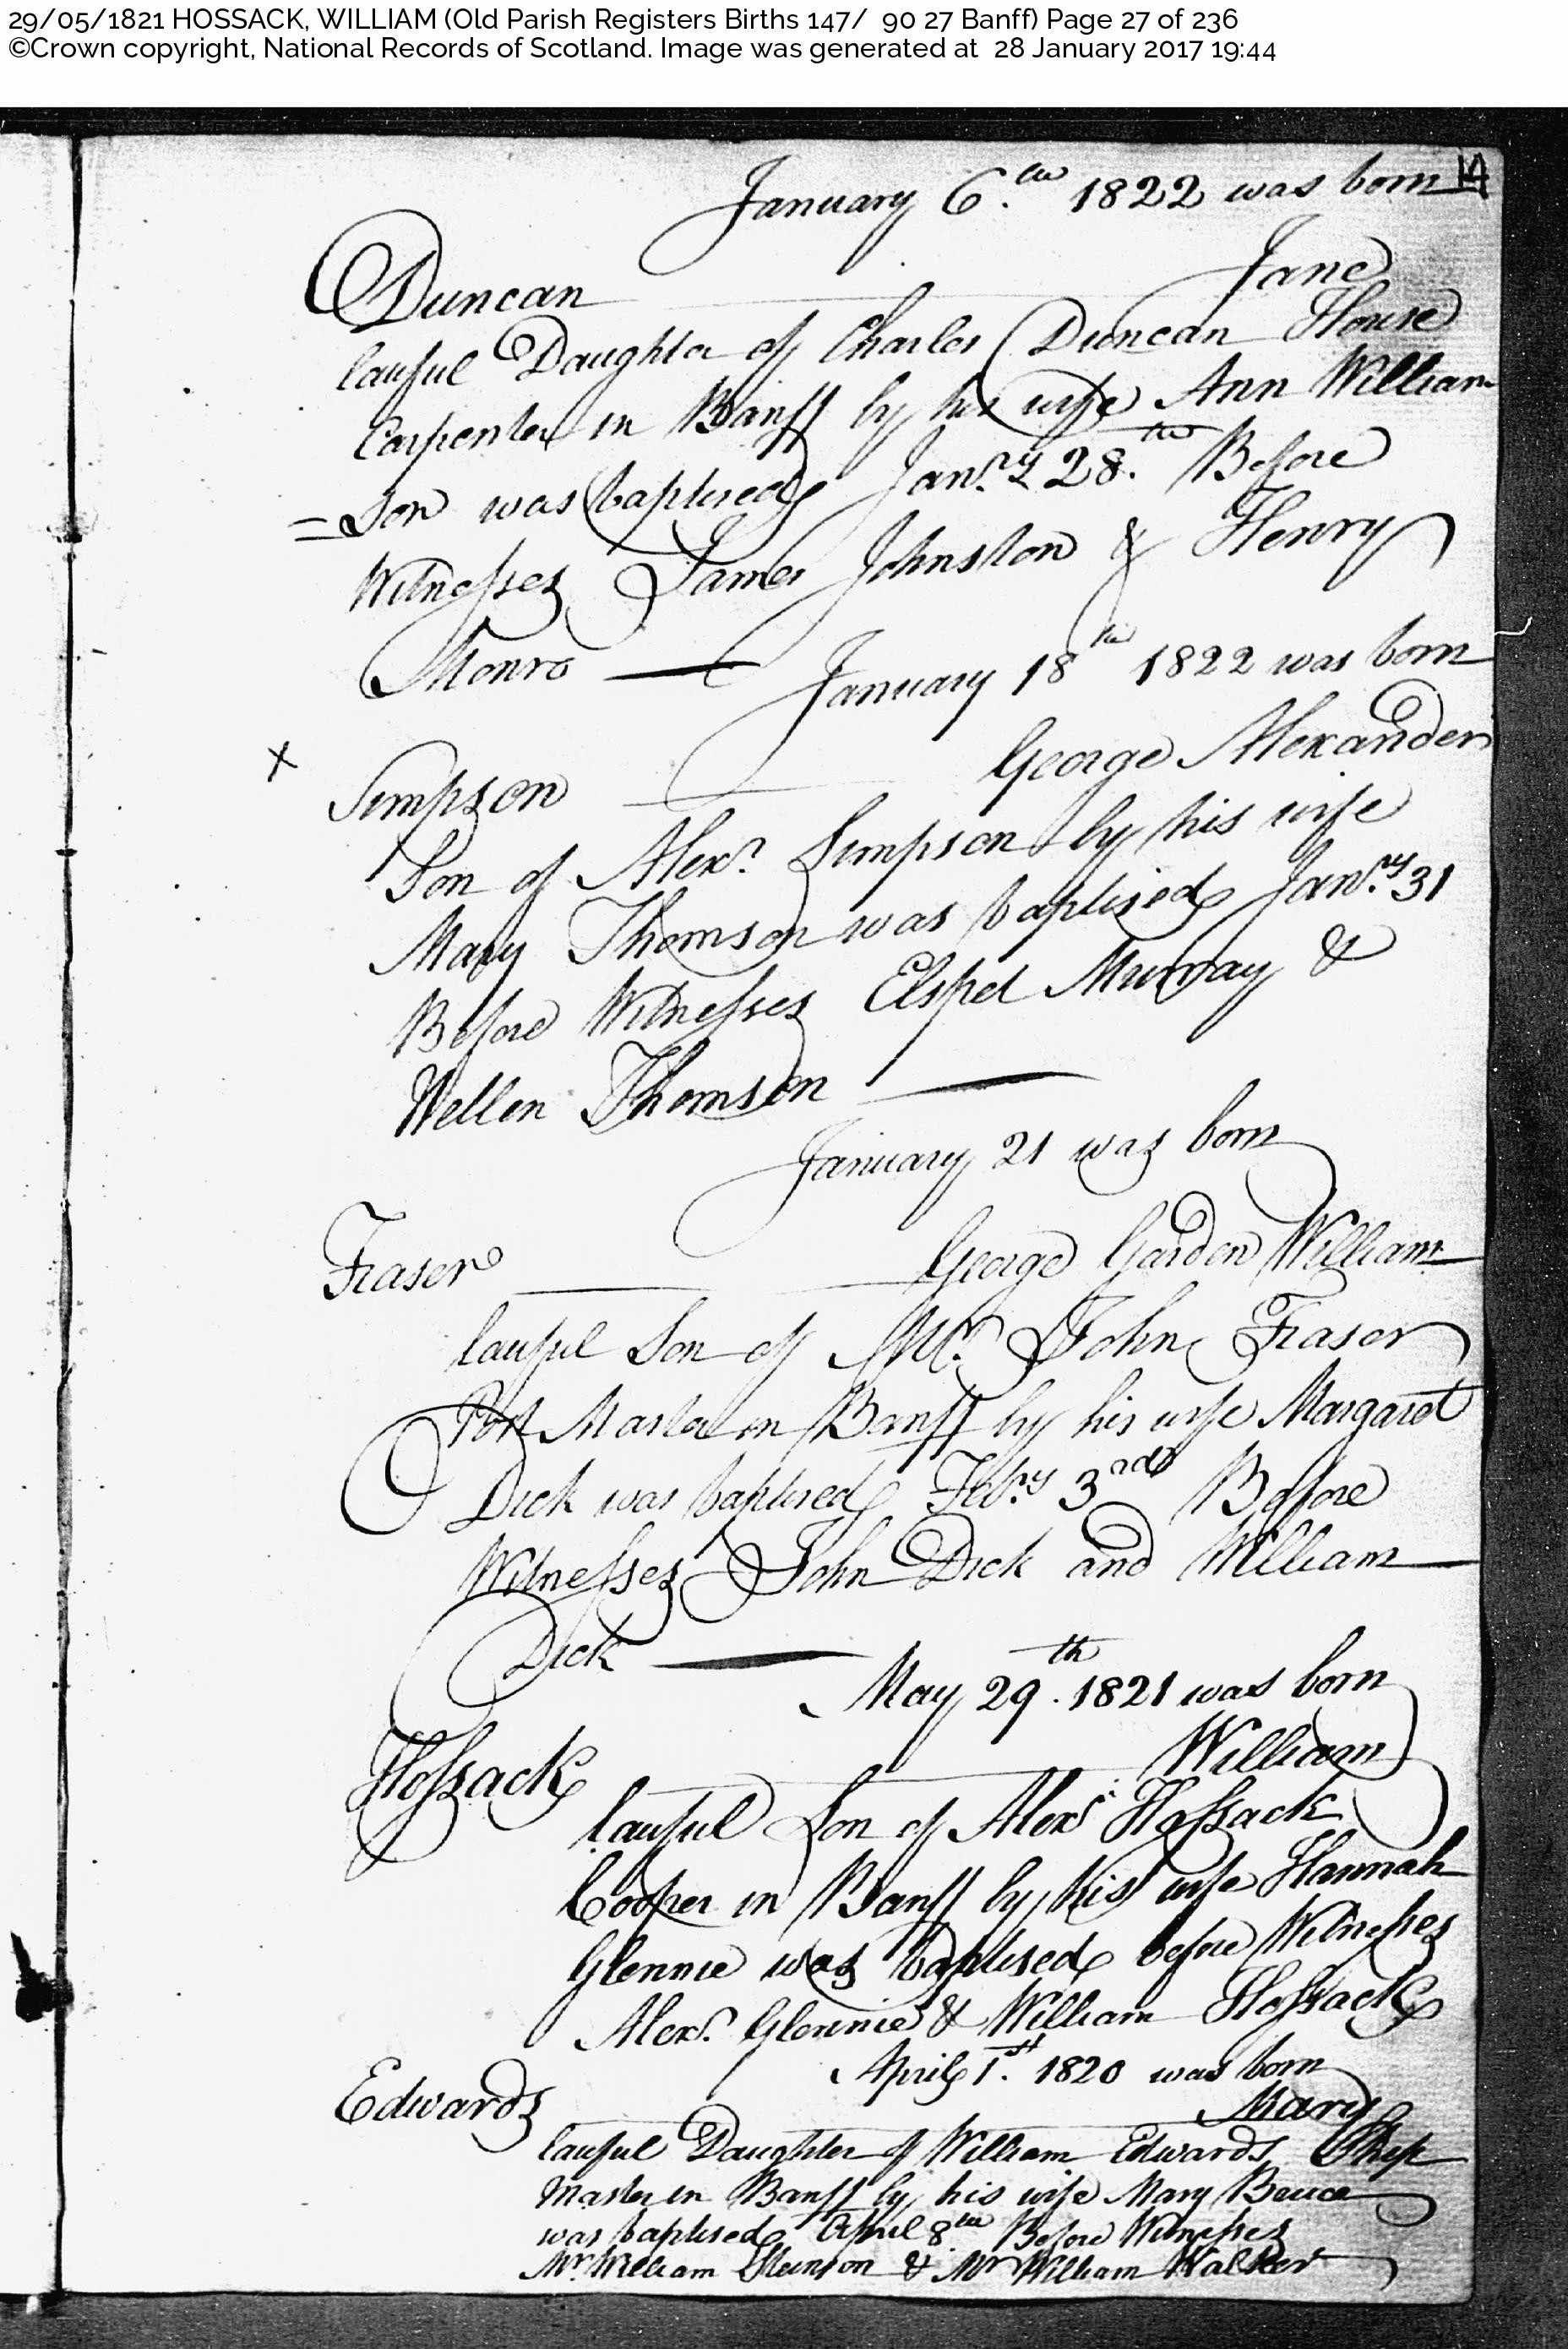 29/05/1821 HOSSACK, WILLIAM (Old Parish Registers Births 147/ 90 27 Banff) Page 27 of 236
©Crown copyright, National Records of Scotland. Image was generated at 28 January 2017 19:44
January 6.th 1822 was born
Duncan Jane
lawful Daughter of Charles Duncan House
Carpenter in Banff by his wife Ann William
= son was baptised Janry 28.th Before
Witnesses James Johnston & Henry
Monro
January 18th 1822 was born
x
George Alexander
Simpson
Son of Alexr. Simpson by his wife
Mary Thomson was baptised Janry 31
Before Witnesses Elspet Murray &
Wellen Thomson
January 21 was born
Fraser George Garden William
lawful Son of Mr. John Fraser
Post Master in Banff by his wife Margaret
Dick was baptised Febry 3rd Before
Witnesses John Dick and William
Dick
May 29.th 1821 was born
Hossack William
lawful Son of Alexr Hossack
Cooper in Banff by his wife Hannah
Glennie was baptised before Witnesses
Alexr. Glennie & William Hossack
April 1.st 1820 was born
Edwards Mary
lawful Daughter of William Edwards Ship
Master in Banff by his wife Mary Bruce
was baptised April 8th Before Witnesses
Mr. William & Mr William Walker